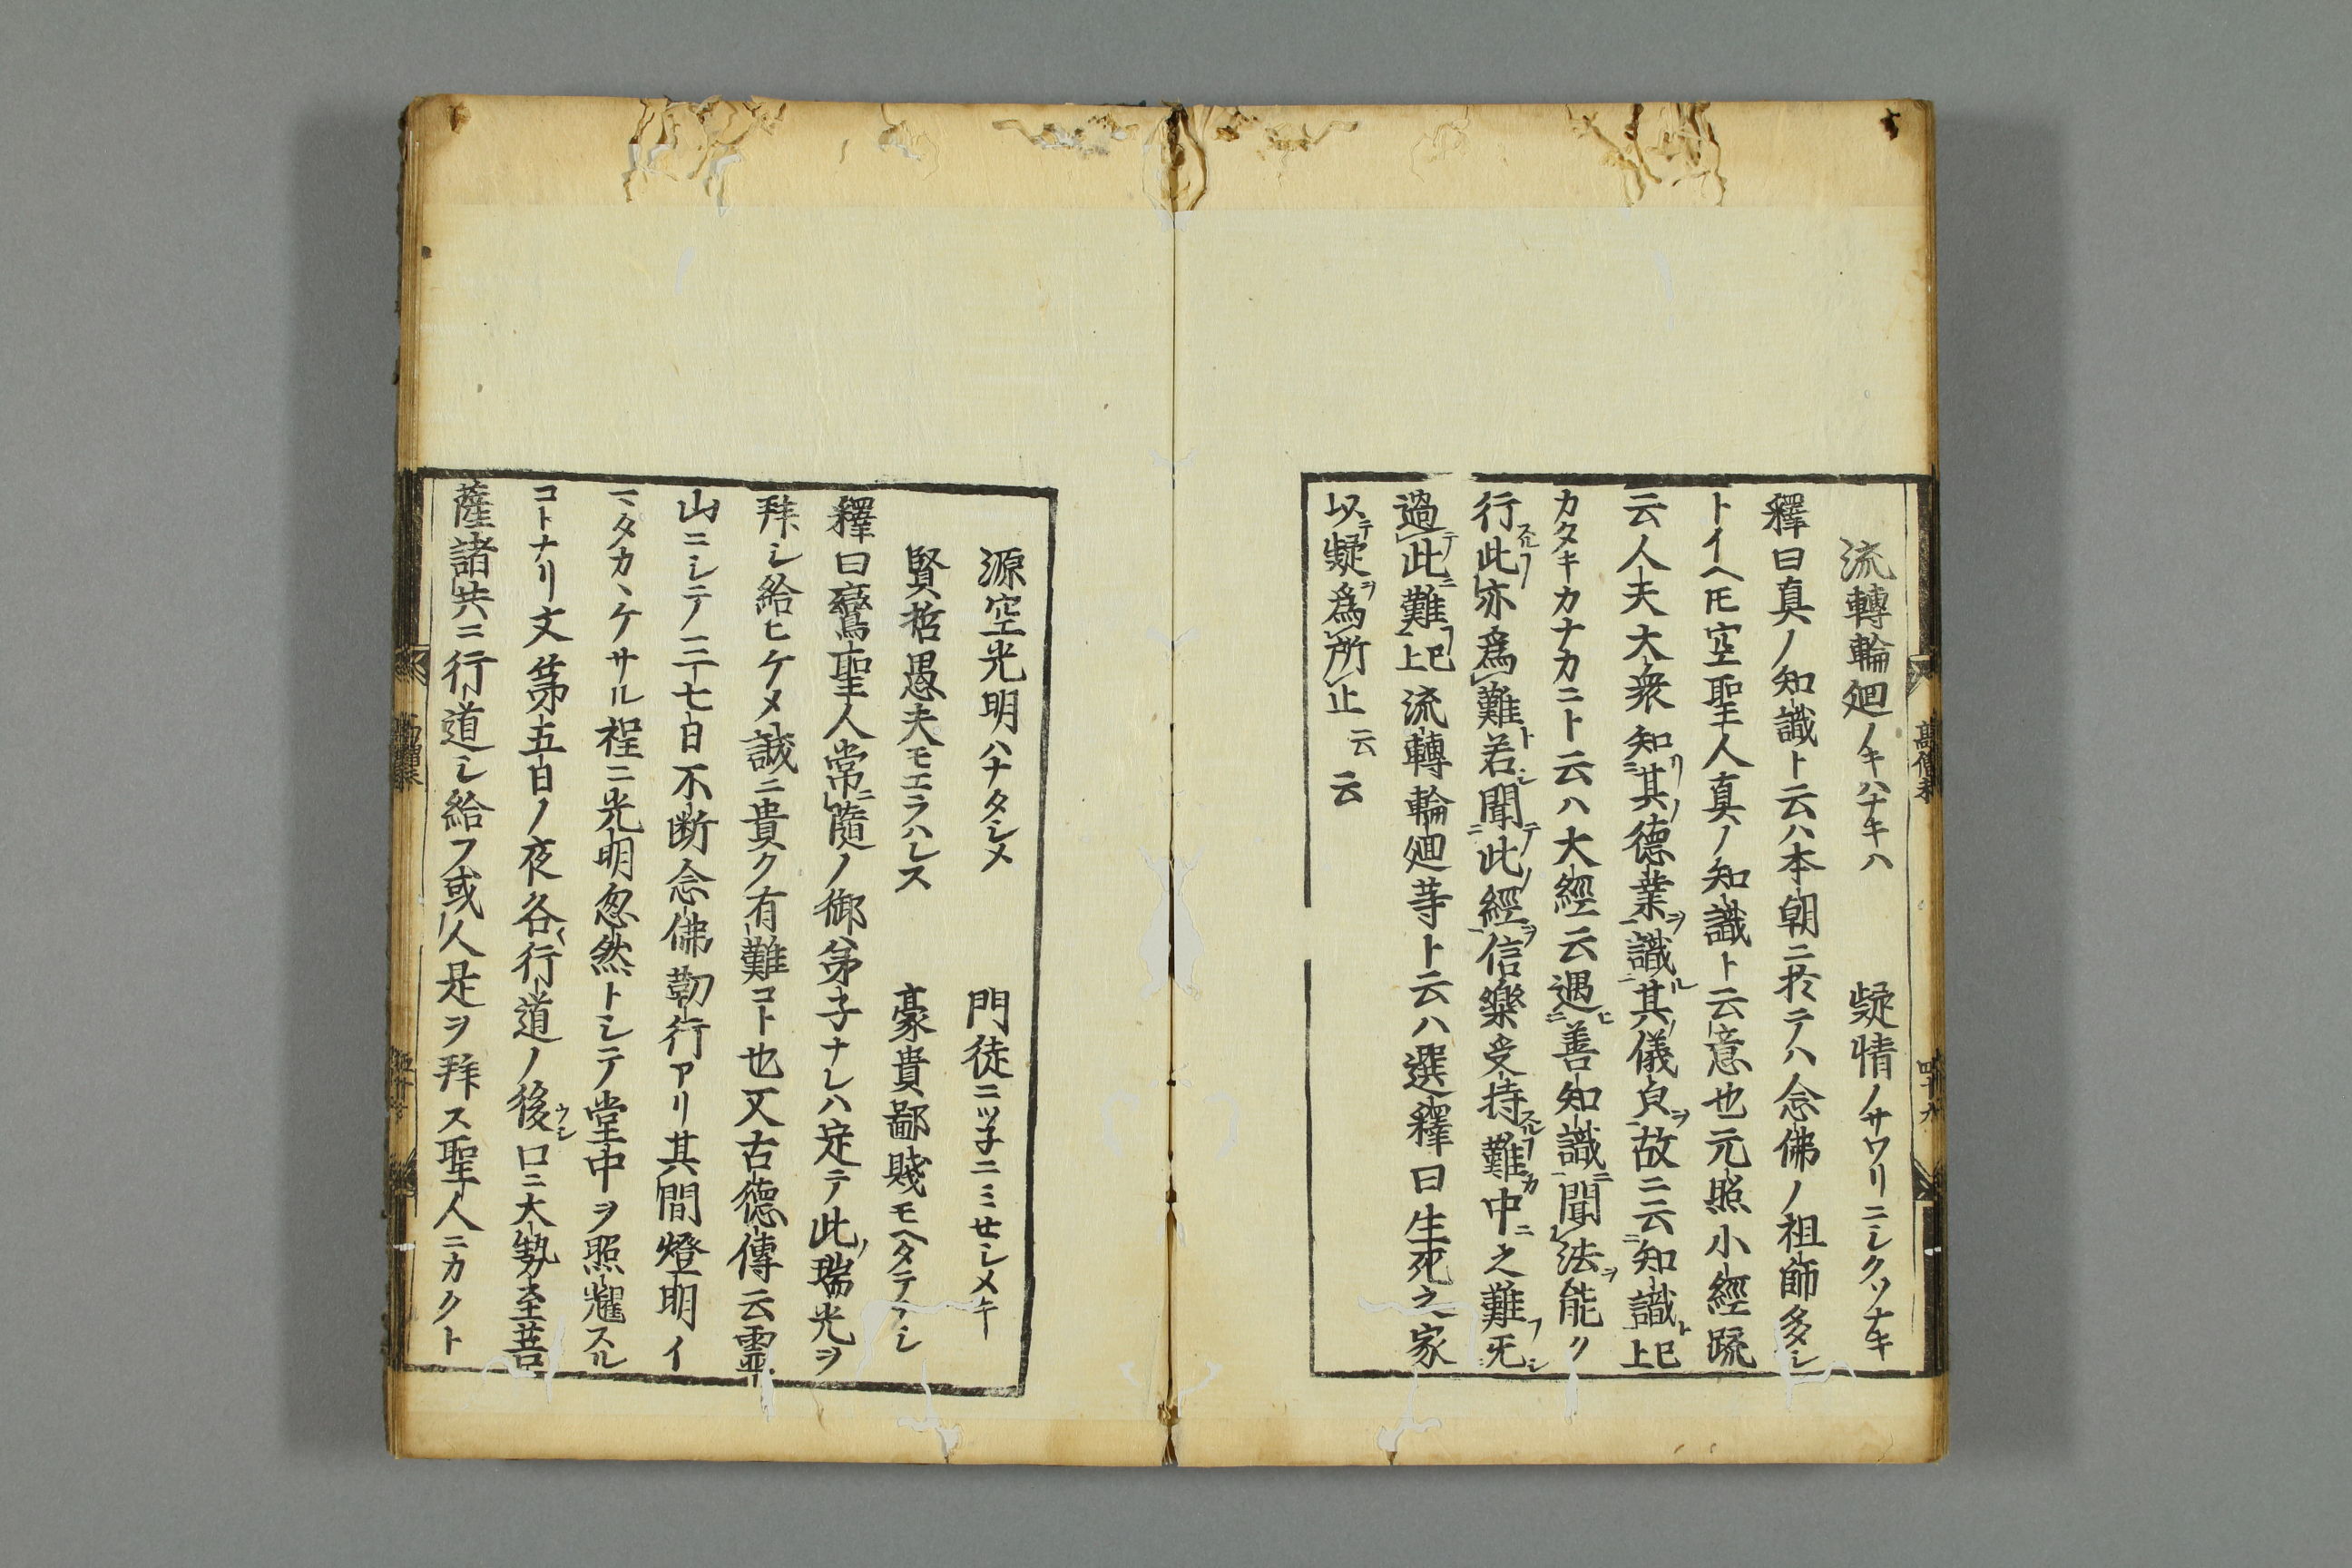 流轉輪廻ノキハナキハ　疑情ノサワリニシクソナキ
釋曰真ノ知識ト云ハ本朝ニ於テハ念佛ノ祖師多シ
トイヘ𪜈空聖人真ノ知識ト云意也元照小經疏
云人夫大衆知其德業識其儀皃故ニ云知識上巳
カタキカナカニト云ハ大經云遇善知識聞法能ク
行此亦為難若聞此經信樂受持難中之難无
過此難上巳流轉輪廻等ト云ハ選釋曰生死之家
以疑為所止云云
源空光明ハナタシメ　門徒ニツ子ニミせシメキ
賢哲愚夫モエラハレス　豪貴鄙賤モヘタテナシ
釋曰鸞聖人常隨ノ御弟子ナレハ定テ此瑞光ヲ
拜シ給ヒケメ誠ニ貴ク有難コト也又古德傳云靈
山ニシテ三七日不断念佛勤行アリ其間燈明イ
マタカヽケサル程ニ光明忽然トシテ堂中ヲ照耀スル
コトナリ文第五日ノ夜各行道ノ後口ニ大勢至菩
薩諸共ニ行道シ給フ或人是ヲ拜ス聖人ニカクト
高僧和
四十九